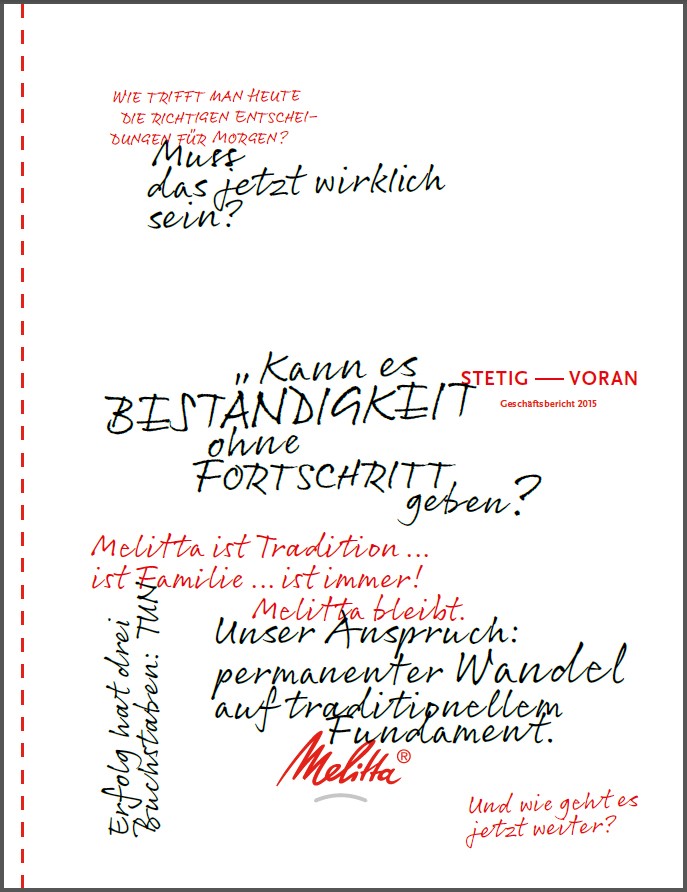 WIE TRIFFT MAN HEUTE
DIE RICHTIGEN ENTSCHEI-
DUNGEN FÜR MORGEN?
Muss
das jetzt wirklich
sein?
„Kann es
BESTÄNDIGKEIT
ohne
FORTSCHRITT
geben?
STETIG — VORAN
Geschäftsbericht 2015
Melitta ist Tradition ...
ist Familie ... ist immer!
Melitta bleibt.
Erfolg hat drei
Buchstaben: TUN
Unser Anspruch:
permanenter Wandel
auf traditionellem
Fundament.
Melitta®
Und wie geht es
jetzt weiter?